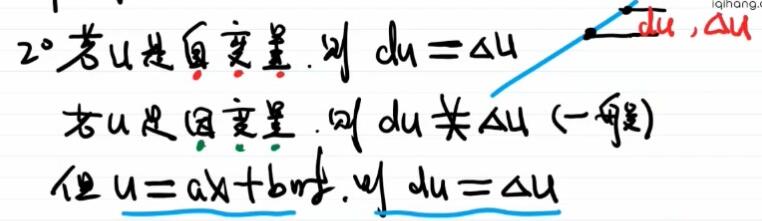 iqihang.c
du, Δu
2° 若u是自变量.则 du=Δu
若u是因变量.则 du≠Δu (一般)
但 u=ax+b时.则 du=Δu